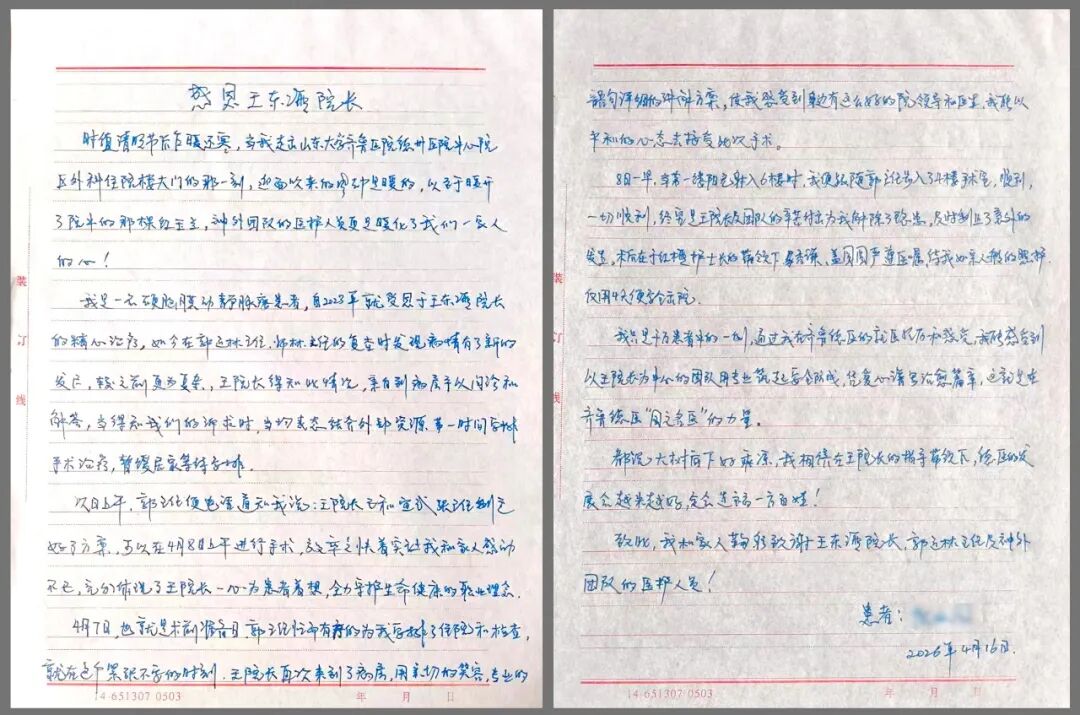 感恩王东海院长
时值清明节后乍暖还寒，当我走出山东大学齐鲁医院德州医院中心院
区外科住院楼大门的那一刻，迎面吹来的风却是暖的，以至于暖开
了院中的那棵白玉兰，神外团队的医护人员更是暖化了我们一家人
的心！
我是一名硬脑膜动静脉瘘患者，自2023年就受恩于王东海院长
的精心治疗，如今在郭运林主任、林主任的复查时发现病情有了新的
发展，较之前更为复杂，王院长得知此情况，亲自到病房予以问诊和
解答，当得知我们的诉求时，当场表态结合外部资源第一时间安排
手术治疗，暂缓居家等待安排。
次日上午，郭主任便电话通知我说：王院长已和宣武张主任制定
好了方案，可以在4月8日上午进行手术，效率之快着实让我和家人感动
不已，充分体现了王院长一心为患者着想，全力守护生命健康的职业理念。
4月7日，也就是术前准备日，郭主任忙而有序的为我安排了住院和检查，
就在这个紧张不安的时刻，王院长再次来到了病房，用亲切的笑容，专业的
语句详细的讲解方案，使我感受到能有这么好的院领导和医生，我能以
平和的心态去接受此次手术。
8日一早，当第一缕阳光射入6楼时，我便跟随郭主任步入了4楼手术室，顺利，
一切顺利，终究是王院长及团队的辛苦付出为我解除了隐患，及时制止了意外的
发生，术后在于红梅护士长的带领下，严遵医嘱，待我如亲人般的照护，
仅用4天便安全出院。
我只是千万患者中的一例，通过我在齐鲁德医的就医经历和感受，我能感合到
以王院长为中心的团队用专业筑起安全防线，凭爱心谱写治愈篇章，这就是在
齐鲁德医“国之名医”的力量。
都说大树底下好乘凉，我相信在王院长的指导带领下，德医的发
展会越来越好，定会造福一方百姓！
致此，我和家人鞠躬致谢王东海院长，郭运林主任及神外
团队的医护人员！
患者：
2026年4月16日.
装
订
线
装
订
线
14-651307-0503
年 月 日
14-651307-0503
年 月 日